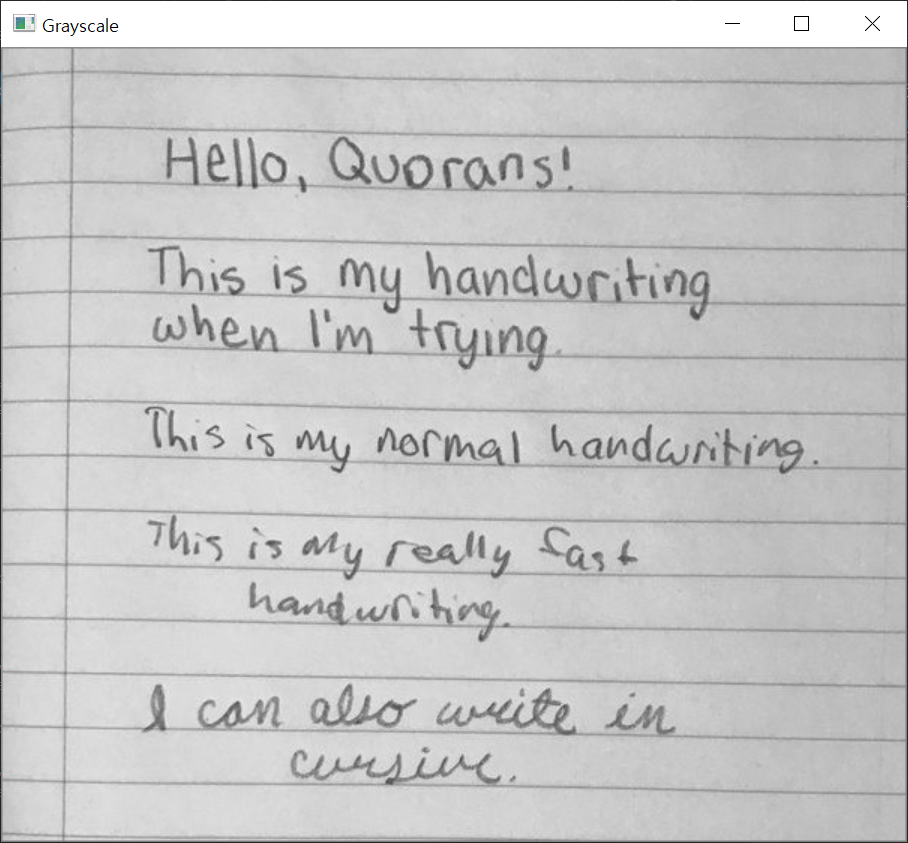 Grayscale
Hello, Quorans!
This is my handwriting
when I'm trying.
This is my normal handwriting.
This is my really fast
handwriting.
I can also write in
cursive.